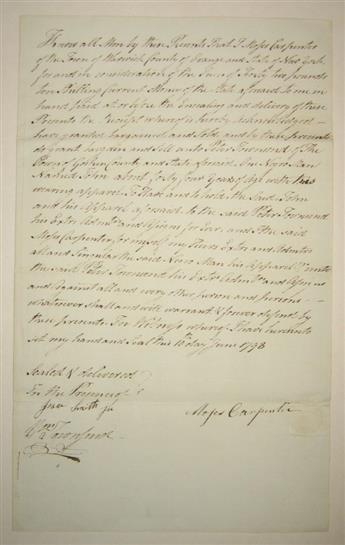 Know all Men by these Presents that I Moses Carpenter
of the Town of Warwick County of Orange and State of New York
for and in consideration of the Sum of Forty two pounds
ten Shillings Current Money of the State aforesaid to me in
hand paid at or before the Ensealing and delivery of these
Presents the Receipt whereof is hereby acknowledged
have granted bargained and Sold and by these presents
do Grant bargain and Sell unto Peter Townsend of the
Town of Goshen County and State aforesaid One Negro Man
Named John about forty four Years of Age with his
wearing apparel To Have and to hold the said John
and his Apparel aforesaid to the said Peter Townsend
his Exrs Admrs and Assigns for Ever and I the said
Moses Carpenter for myself my Heirs Exrs and Admrs
all and Singular the said Negro Man his Apparel unto
the said Peter Townsend his Exrs Admrs and Assigns
and against all and every other person and persons
whatsoever shall and will warrant & forever defend by
these presents In Witness whereof I have hereunto
set my hand and Seal this day June 1798
Sealed & delivered
In the Presence of
Smith Jr
Moses Carpenter
Wm Townsend